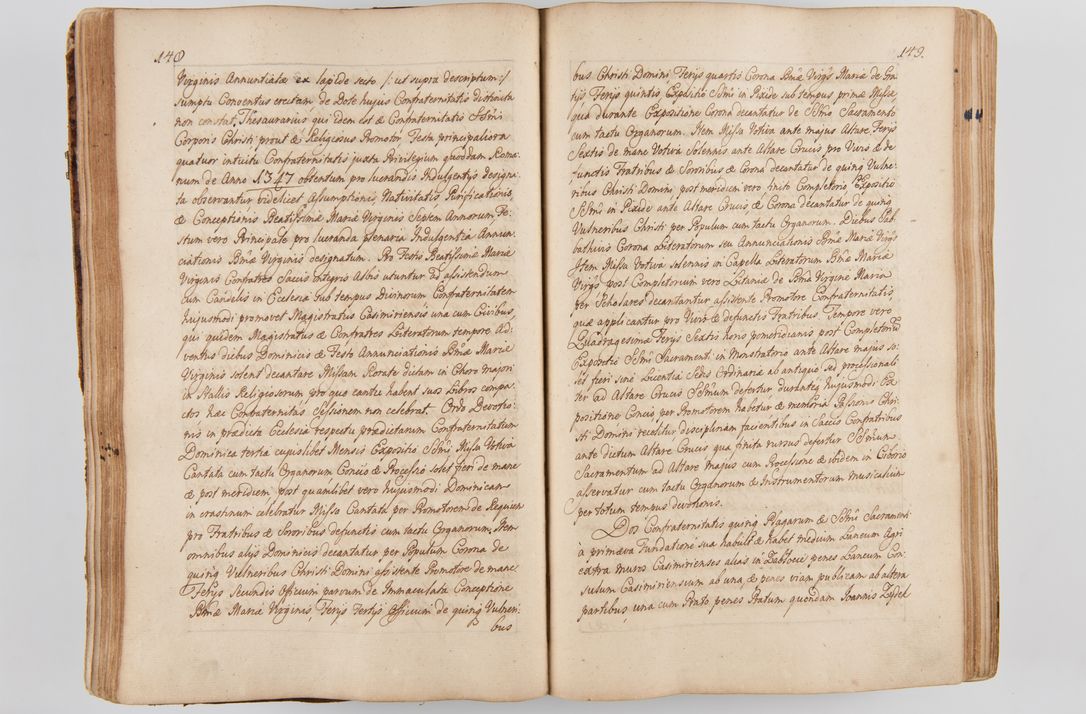 148
Virginis Annuntiatæ ex lapide secto /: ut supra descriptum :/
sumptu Conventus erectam, de Dote hujus Confraternitatis distincta
non constat. Thesaurarius qui idem est & Confraternitatis Ssmi
Corporis Christi prout & Religiosus Promotor Festa principaliora
quatuor intuitu Confraternitatis juxta Privilegium quoddam Roma-
num de Anno 1347 obtentum pro lucrandis Indulgentys designa-
ta observantur videlicet Assumptionis, Nativitatis Purificationis,
& Conceptionis Beatissimæ Mariæ Virginis Septem Annorum, Fe-
stum vero Principale pro lucranda plenaria Indulgentia Annun-
ciationis Bmæ Virginis designatum. Pro Festis Beatissimæ Mariæ
Virginis Confratres Saccis integris Albis utuntur ad assistendum
cum Candelis in Ecclesia sub tempus Divinorum Confraternitatem
hujusmodi promovet Magistratus Casimiriensis una cum Civibus,
qui quidem Magistratus & Confratres Literatorum tempore Ad-
ventus diebus Dominicis & Festis Annunciationis Bmæ Mariæ
Virginis solent decantare Missam Rorate dictam in Choro majori
in Stallis Religiosorum pro quo cantu habent suos Libros compa-
ctos hæc Confraternitas Sessionem non celebrat. Ordo Devotio-
nis in prædicta Ecclesia respectu prædictarum Confraternitatum
Dominica tertia cujuslibet Mensis Expositio Ssmi Missa Votiva
Cantata cum tactu Organorum Concio & Processio solet fieri de mane
& post meridiem, post quamlibet vero hujusmodi Dominicam
in crastinum celebratur Missa Cantata per Promotorem de Requiem
pro Fratribus & Sororibus defunctis cum tactu Organorum, Item
omnibus alys Dominicis decantatur per Populum Corona de
quinq Vulneribus Christi Domini assistente Promotore de mane
Ferys Secundis Officium parvum de Immaculata Conceptione
Bmæ Mariæ Virginis, Ferys Tertys Officium de quinq Vulneri-
bus
149.
bus Christi Domini, Ferys quartis Corona Bmæ Virgs Mariæ de
tys Ferys quintis Expositio Ssmi in Pixide sub tempus primæ Missæ,
qua durante Expositione Corona decantatur de Ssmo Sacramento
cum tactu Organorum. Item Missa Votiva ante majus Altare Ferys
Sextis de mane Votiva Solennis ante Altare Crucis, pro Vivis & de-
functis Fratribus & Sororibus & Corona decantatur de quinq Vulne-
ribus Christi Domini, post meridiem vero finito Completorio Expositio
Ssmi in Pixide ante Altare Crucis, & Corona decantatur de quinq
Vulneribus Christi per Populum cum tactu Organorum. Diebus Sab-
bathivis Corona Literatorum seu Annunciationis Bmæ Mariæ Virgs
Item Missa Votiva solennis in Capella Literatorum Bmæ Mariæ
Virgs post Completorium vero Litaniæ de Bma Virgine Maria
per Scholares decantantur assistente Promotore Confraternitatis,
quæ applicantur pro Vivis & defunctis Fratribus. Tempore vero
Quadragesimæ Ferys Sextis horis pomeridianis post Completorium
Expositio Ssmi Sacramenti in Monstratorio ante Altare majus so-
let fieri sine Licentia Sedis Ordinariæ ab antiquo sed processionali-
ter ad Altare Crucis Ssmum defertur durante hujusmodi Ex-
positione Concio per Promotorem habetur & memoria Passionis Chri-
sti Domini recolitur disciplinam facientibus in Saccis Confratribus
ante dictum Altare Crucis qua finita rursus defertur Ssmum
Sacramentum ad Altare majus cum Processione & ibidem in Ciborio
asservatur cum tactu Organorum & Instrumentorum musicalium
per totum tempus devotionis.
Dos Confraternitatis quinq Plagarum & Ssmi Sacramenti
à primæva Fundatione sua habuit & habet medium Laneum Agri
extra muros Casimirienses alias in Zabłocie penes Laneum Con-
sulum Casimiriensium ab una, & penes viam publicam ab altera
partibus, una cum Prato, penes Pratum quondam Ioannis Zydek